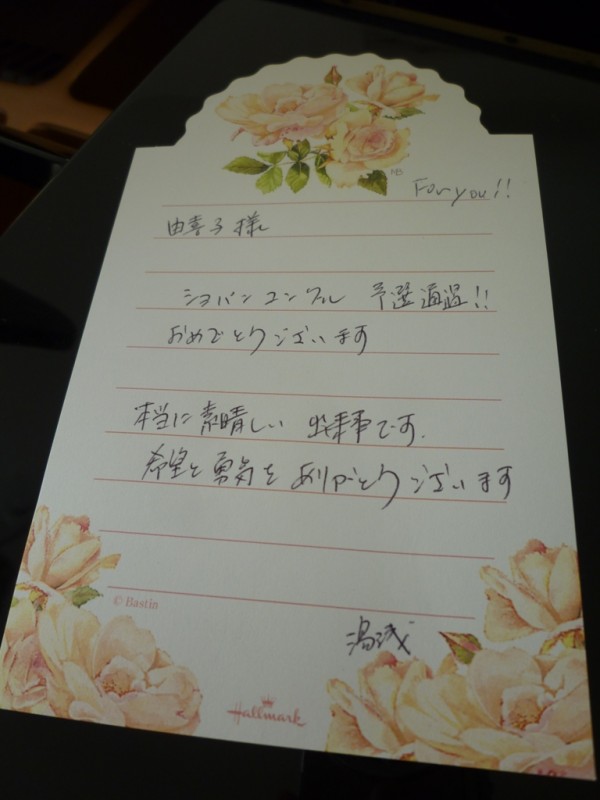 For you!!
由喜子様
ショパンコンクール 予選通過!!
おめでとうございます
本当に素晴しい 出来事です.
希望と勇気を ありがとうございます
© Bastin
湯浅
Hallmark